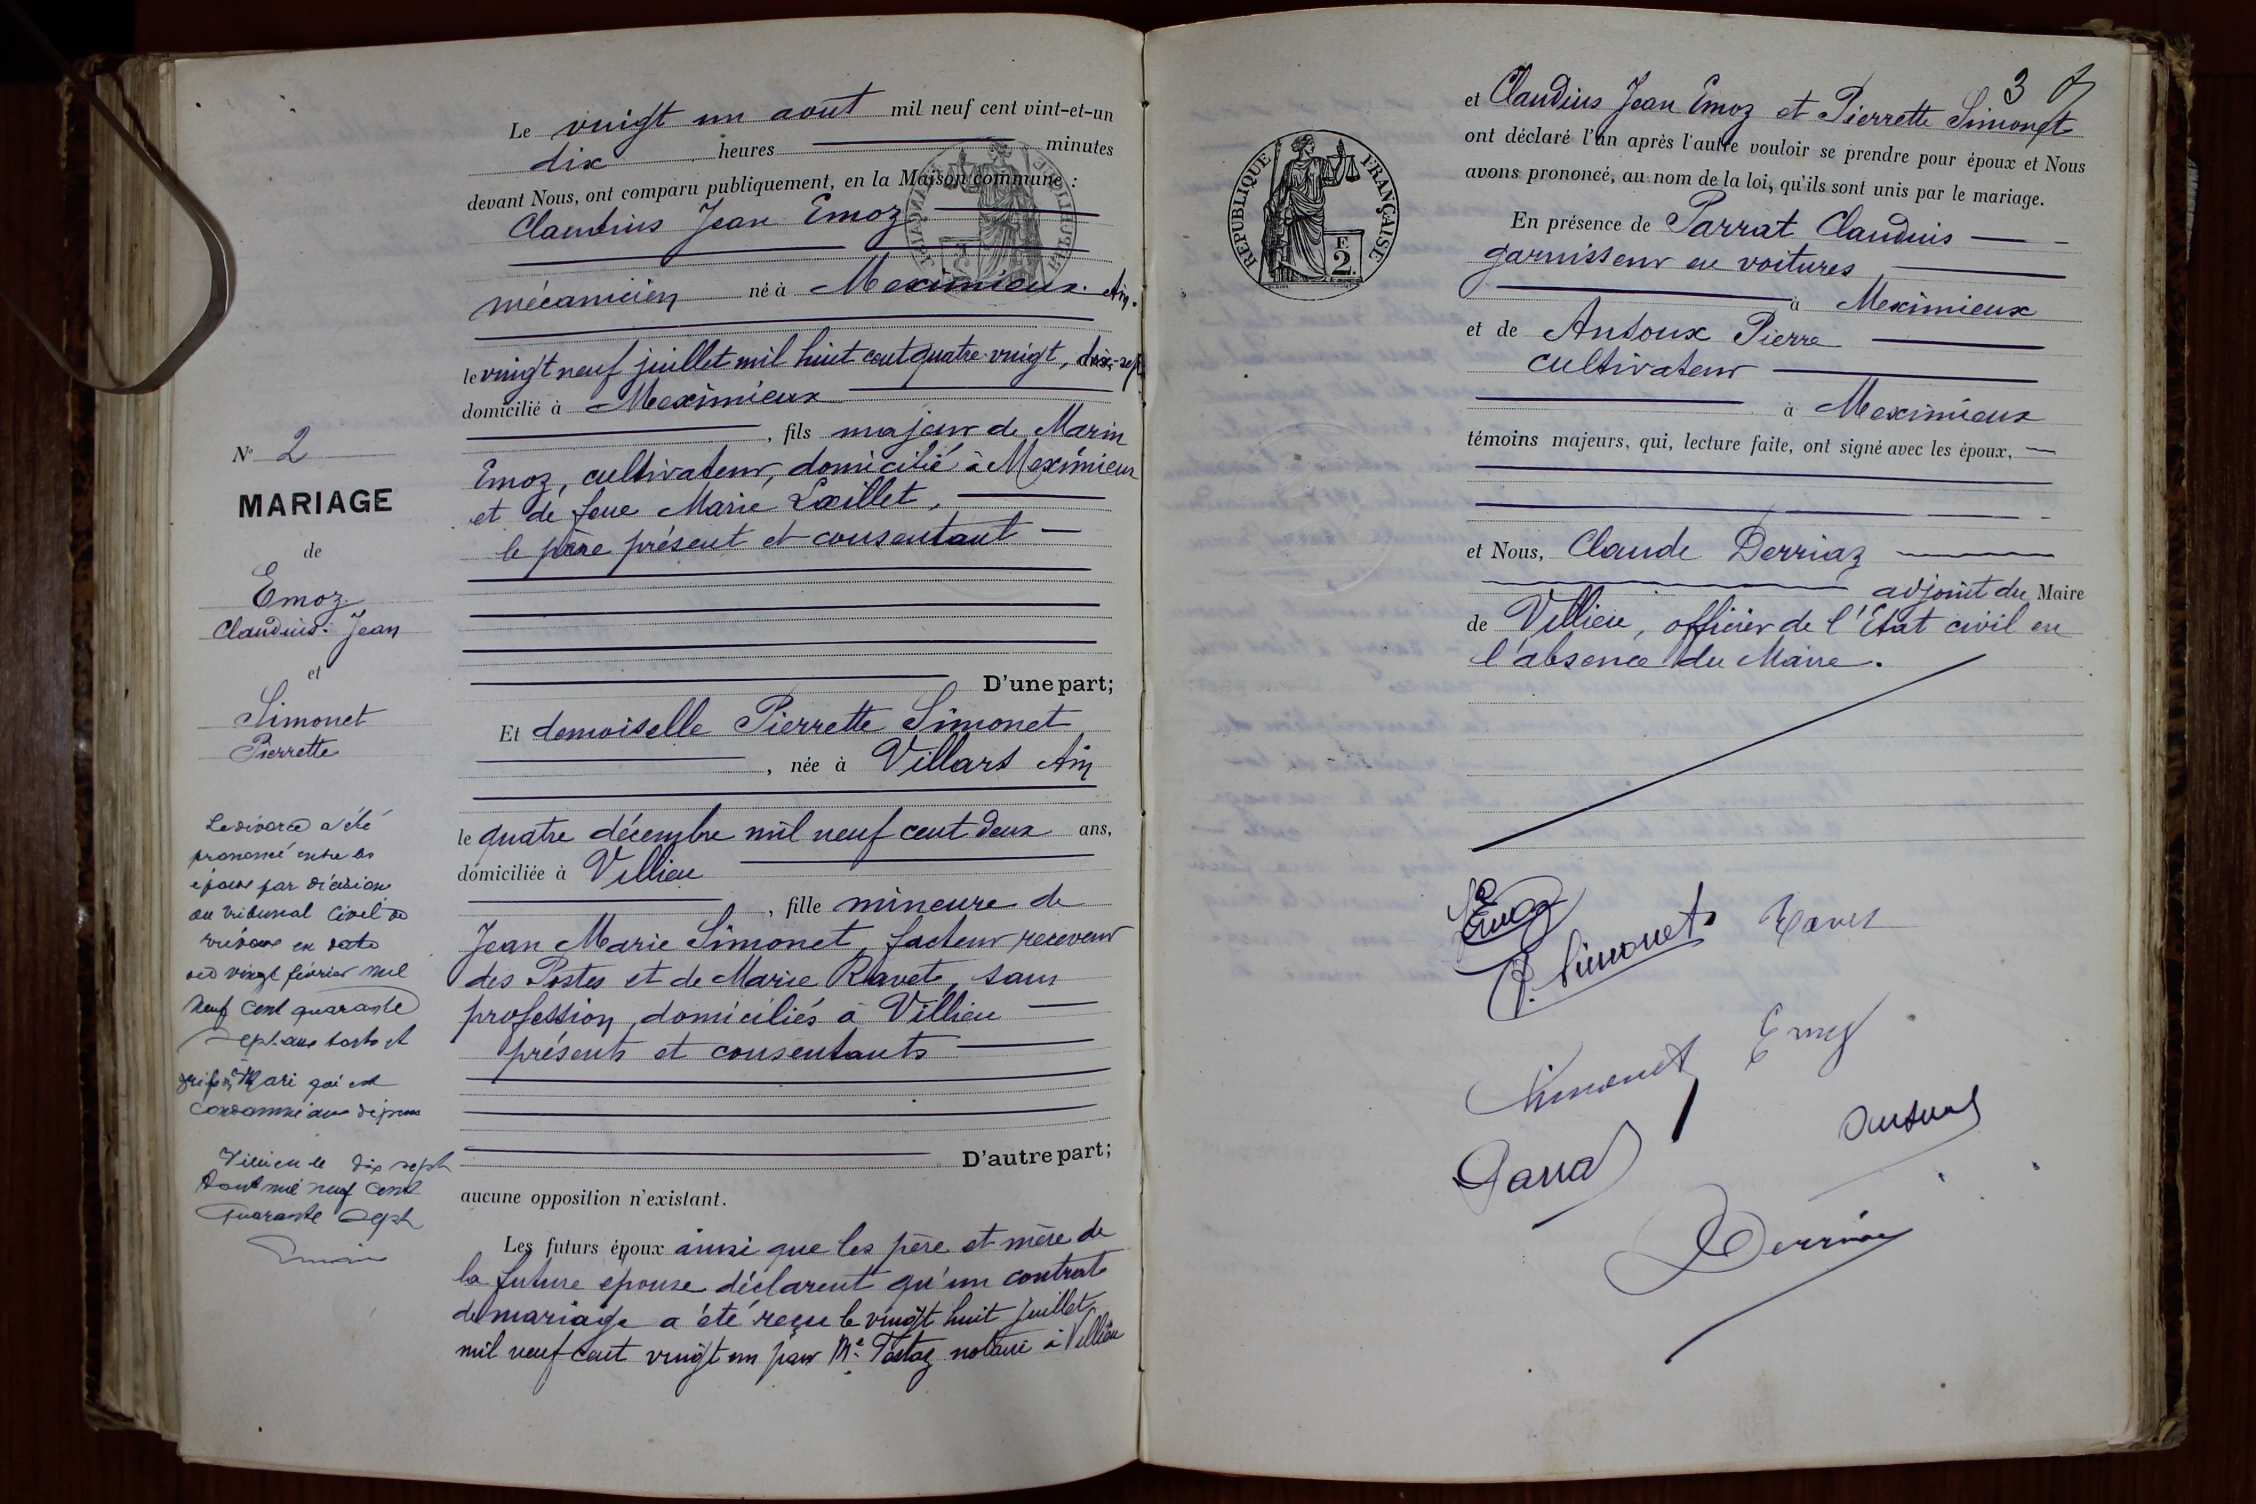 Le vingt un août mil neuf cent vint-et-un
dix heures minutes
devant Nous, ont comparu publiquement, en la Maison commune :
Claudius Jean Emoz
mécanicien né à Meximieux. Ain.
le vingt neuf juillet mil huit cent quatre-vingt, dix-sept
domicilié à Meximieux
, fils majeur de Marin
Emoz, cultivateur, domicilié à Meximieux
et de feue Marie Lœillet,
le père présent et consentant
D'une part;
Et demoiselle Pierrette Simonet
, née à Villars Ain
le quatre décembre mil neuf cent deux ans,
domiciliée à Villieu
, fille mineure de
Jean Marie Simonet, facteur receveur
des Postes et de Marie Ravet, sans
profession, domiciliés à Villieu
présents et consentants
D'autre part;
aucune opposition n'existant.
Les futurs époux ainsi que les père et mère de
la future épouse déclarent qu'un contrat
de mariage a été reçu le vingt huit juillet
mil neuf cent vingt un par Me notaire à Villieu
No 2
MARIAGE
de
Emoz
Claudius Jean
et
Simonet
Pierrette
Le divorce a été
prononcé entre les
époux par décision
du tribunal Civil de
en date
du vingt février mil
neuf cent quarante
Sept aux torts et
griefs du Mari qui est
Condamné aux dépens
Villieu le dix sept
Août mil neuf cent
Quarante Sept
3
et Claudius Jean Emoz et Pierrette Simonet
ont déclaré l'un après l'autre vouloir se prendre pour époux et Nous
avons prononcé, au nom de la loi, qu'ils sont unis par le mariage.
En présence de Parrat Claudius
garnisseur en voitures
à Meximieux
et de Ansoux Pierre
cultivateur
à Meximieux
témoins majeurs, qui, lecture faite, ont signé avec les époux,
et Nous, Claude Derriaz
adjoint du Maire
de Villieu, officier de l'État civil en
l'absence du Maire.
RÉPUBLIQUE FRANÇAISE
F.
2.
Emoz
P. Simonet
Ravet
Simonet
Emoz
Parrat
Derriaz